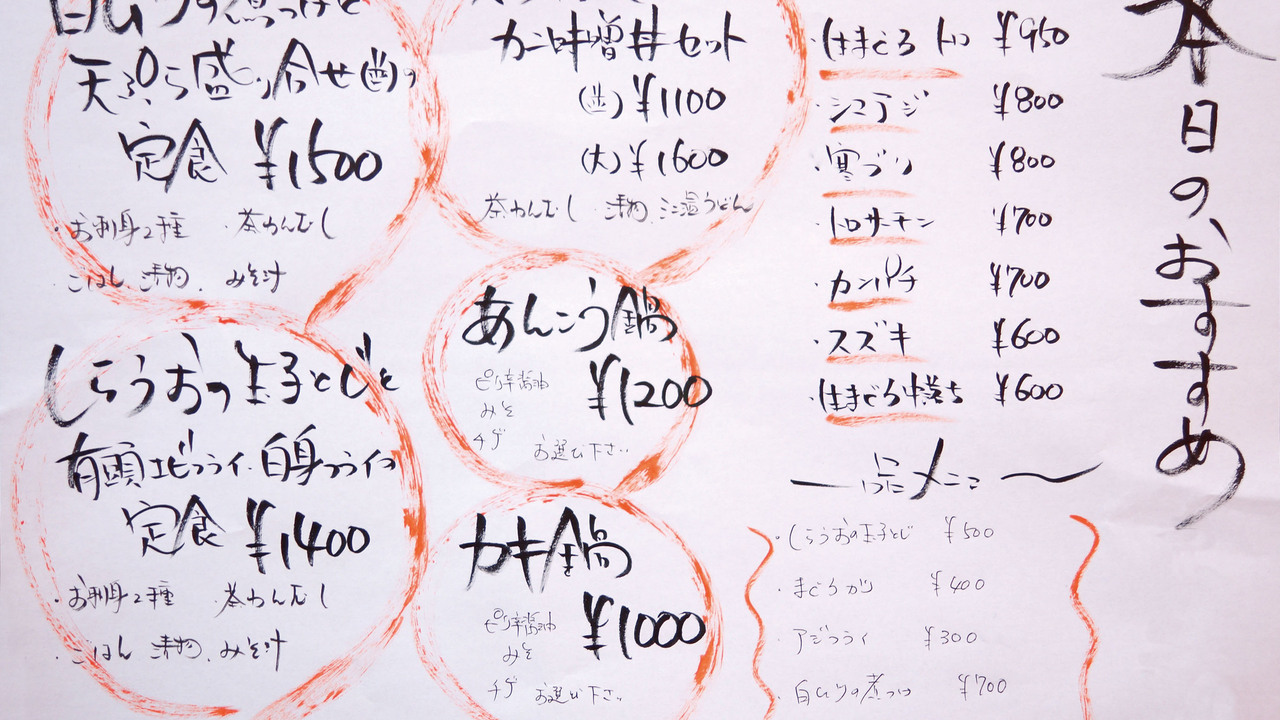 本日の、おすすめ
生まぐろ トロ ¥950
シマアジ ¥800
寒ブリ ¥800
トロサーモン ¥700
カンパチ ¥700
スズキ ¥600
生まぐろ中落ち ¥600
一品メニュー
しらうおの玉子とじ ¥500
まぐろカツ ¥400
アジフライ ¥300
白ムツの煮つけ ¥700
カニ味噌丼セット
(並)¥1100
(大)¥1600
茶わんむし ・漬物、ミニ温うどん
あんこう鍋
¥1200
ピリ辛醤油
みそ
チゲ お選び下さい
カキ鍋
¥1000
ピリ辛醤油
みそ
チゲ お選び下さい
白ムツの煮つけと
天ぷら盛り合せ(歯)の
定食 ¥1500
・お刺身2種 ・茶わんむし
・ごはん、漬物、みそ汁
しらうおの玉子とじと
有頭エビフライ・白身フライの
定食 ¥1400
・お刺身2種 ・茶わんむし
・ごはん 漬物、みそ汁